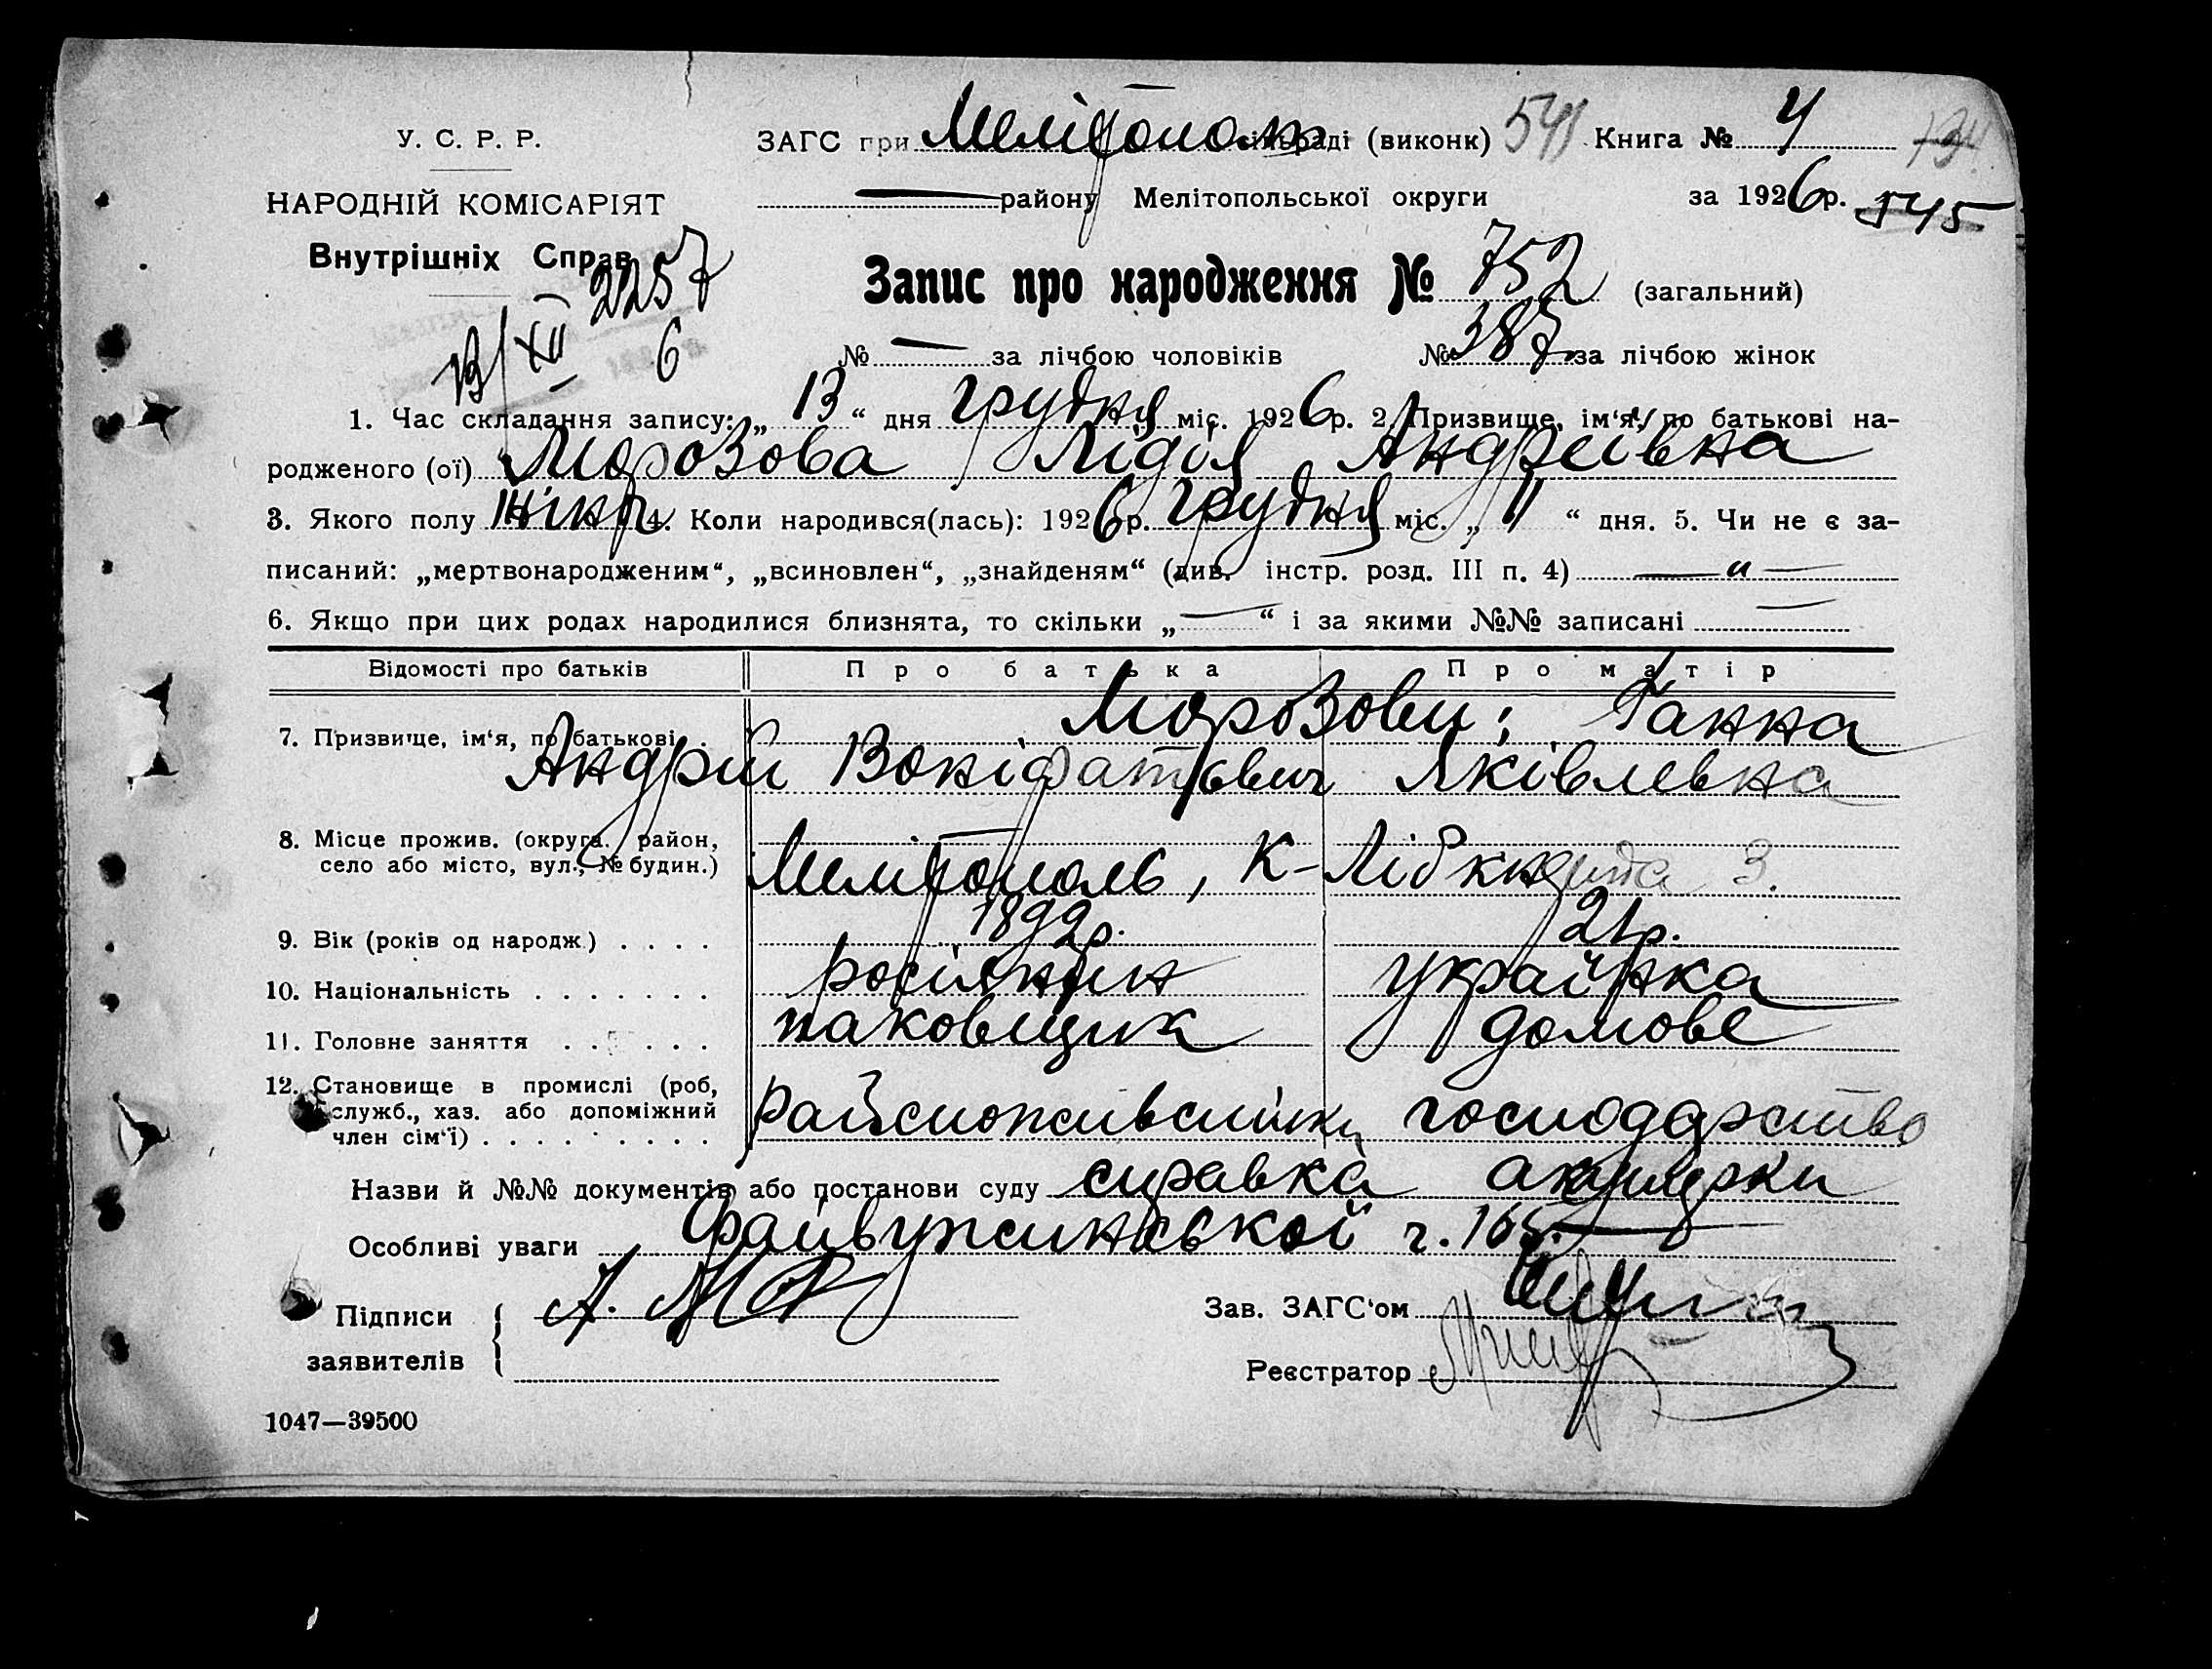 У. С. Р. Р.
ЗАГС при Мелітополь сільраді (виконк) 541 Книга № 4
НАРОДНІЙ КОМІСАРІЯТ
— району Мелітопольської округи за 1926 р. 545
Внутрішніх Справ
2257
Запис про народження № 752 (загальний)
13/XII 6
№ — за лічбою чоловіків № 387 за лічбою жінок
1. Час складання запису: „ 13 “ дня грудня міс. 1926 р. 2. Призвище, ім'я, по батькові на-
родженого (ої) Морозова Лідія Андреівна
3. Якого полу жіноч 4. Коли народився(лась): 1926 р. грудня міс. „ 11 “ дня. 5. Чи не є за-
писаний: „мертвонародженим“, „всиновлен“, „знайденям“ (див. інстр. розд. III п. 4) — „ —
6. Якщо при цих родах народилися близнята, то скільки „ — “ і за якими №№ записані —
Відомості про батьків Про батька Про матір
7. Призвище, ім‘я, по батькові Морозови; Ганна
Андрій Воніфатьевич Яківлевна
8. Місце прожив. (округа, район,
село або місто, вул., № будин.) Мелітополь, К-Лібкнехта 3.
9. Вік (років од народж.) . . . . 1892 р. 21 р.
10. Національність . . . . . . . росіянин украінка
11. Головне заняття . . . . . . паковщик домове
12. Становище в промислі (роб,
служб., хаз. або допоміжний
член сім‘ї) . . . . . . . . . райспоживспілки господарство
Назви й №№ документів або постанови суду справка акушерки
Особливі уваги Файвужинської ч. 165.
Підписи
заявителів
Зав. ЗАГС‘ом
Реєстратор
1047—39500